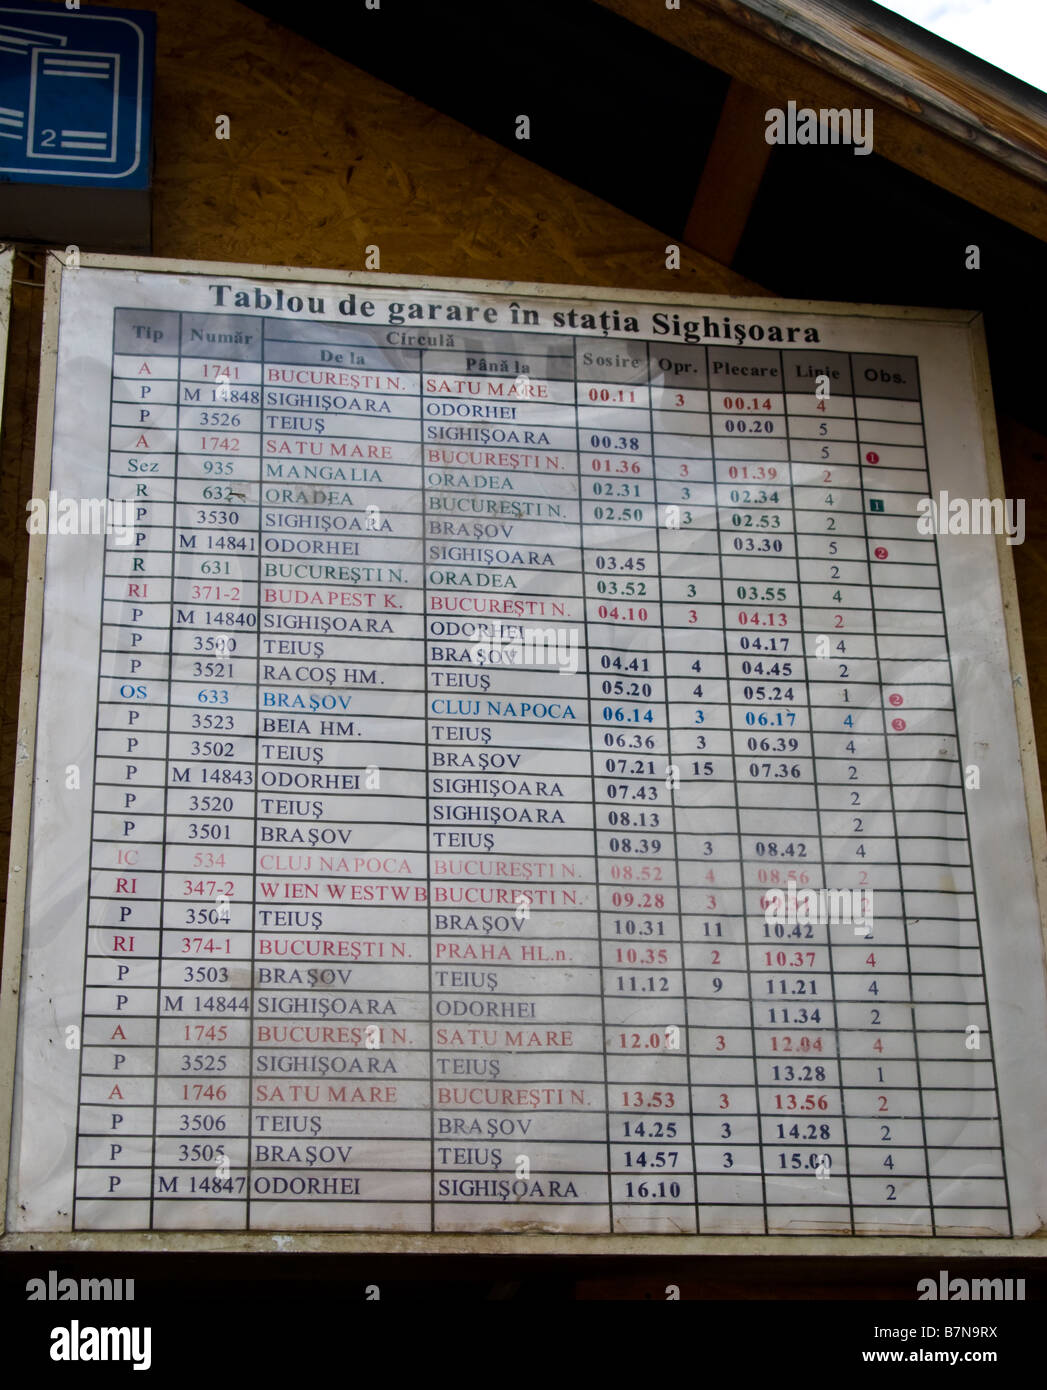 2
Tablou de garare în stația Sighişoara
Tip Număr Circulă Sosire Opr. Plecare Linie Obs.
De la Până la
A 1741 BUCUREŞTI N. SATU MARE 00.11 3 00.14 4
P M 14848 SIGHIŞOARA ODORHEI 00.20 5
P 3526 TEIUŞ SIGHIŞOARA 00.38 5 1
A 1742 SATU MARE BUCUREŞTI N. 01.36 3 01.39 2
Sez 935 MANGALIA ORADEA 02.31 3 02.34 4 1
R 632 ORADEA BUCUREŞTI N. 02.50 3 02.53 2
P 3530 SIGHIŞOARA BRAŞOV 03.30 5 2
P M 14841 ODORHEI SIGHIŞOARA 03.45 2
R 631 BUCUREŞTI N. ORADEA 03.52 3 03.55 4
RI 371-2 BUDAPEST K. BUCUREŞTI N. 04.10 3 04.13 2
P M 14840 SIGHIŞOARA ODORHEI 04.17 4
P 3500 TEIUŞ BRAŞOV 04.41 4 04.45 2
P 3521 RACOŞ HM. TEIUŞ 05.20 4 05.24 1 2
OS 633 BRAŞOV CLUJ NAPOCA 06.14 3 06.17 4 3
P 3523 BEIA HM. TEIUŞ 06.36 3 06.39 4
P 3502 TEIUŞ BRAŞOV 07.21 15 07.36 2
P M 14843 ODORHEI SIGHIŞOARA 07.43 2
P 3520 TEIUŞ SIGHIŞOARA 08.13 2
P 3501 BRAŞOV TEIUŞ 08.39 3 08.42 4
IC 534 CLUJ NAPOCA BUCUREŞTI N. 08.52 4 08.56 2
RI 347-2 WIEN WESTWB BUCUREŞTI N. 09.28 3 09.31 2
P 3504 TEIUŞ BRAŞOV 10.31 11 10.42 2
RI 374-1 BUCUREŞTI N. PRAHA HL.n. 10.35 2 10.37 4
P 3503 BRAŞOV TEIUŞ 11.12 9 11.21 4
P M 14844 SIGHIŞOARA ODORHEI 11.34 2
A 1745 BUCUREŞTI N. SATU MARE 12.01 3 12.04 4
P 3525 SIGHIŞOARA TEIUŞ 13.28 1
A 1746 SATU MARE BUCUREŞTI N. 13.53 3 13.56 2
P 3506 TEIUŞ BRAŞOV 14.25 3 14.28 2
P 3505 BRAŞOV TEIUŞ 14.57 3 15.00 4
P M 14847 ODORHEI SIGHIŞOARA 16.10 2
alamy
Image ID: B7N9RX
www.alamy.com